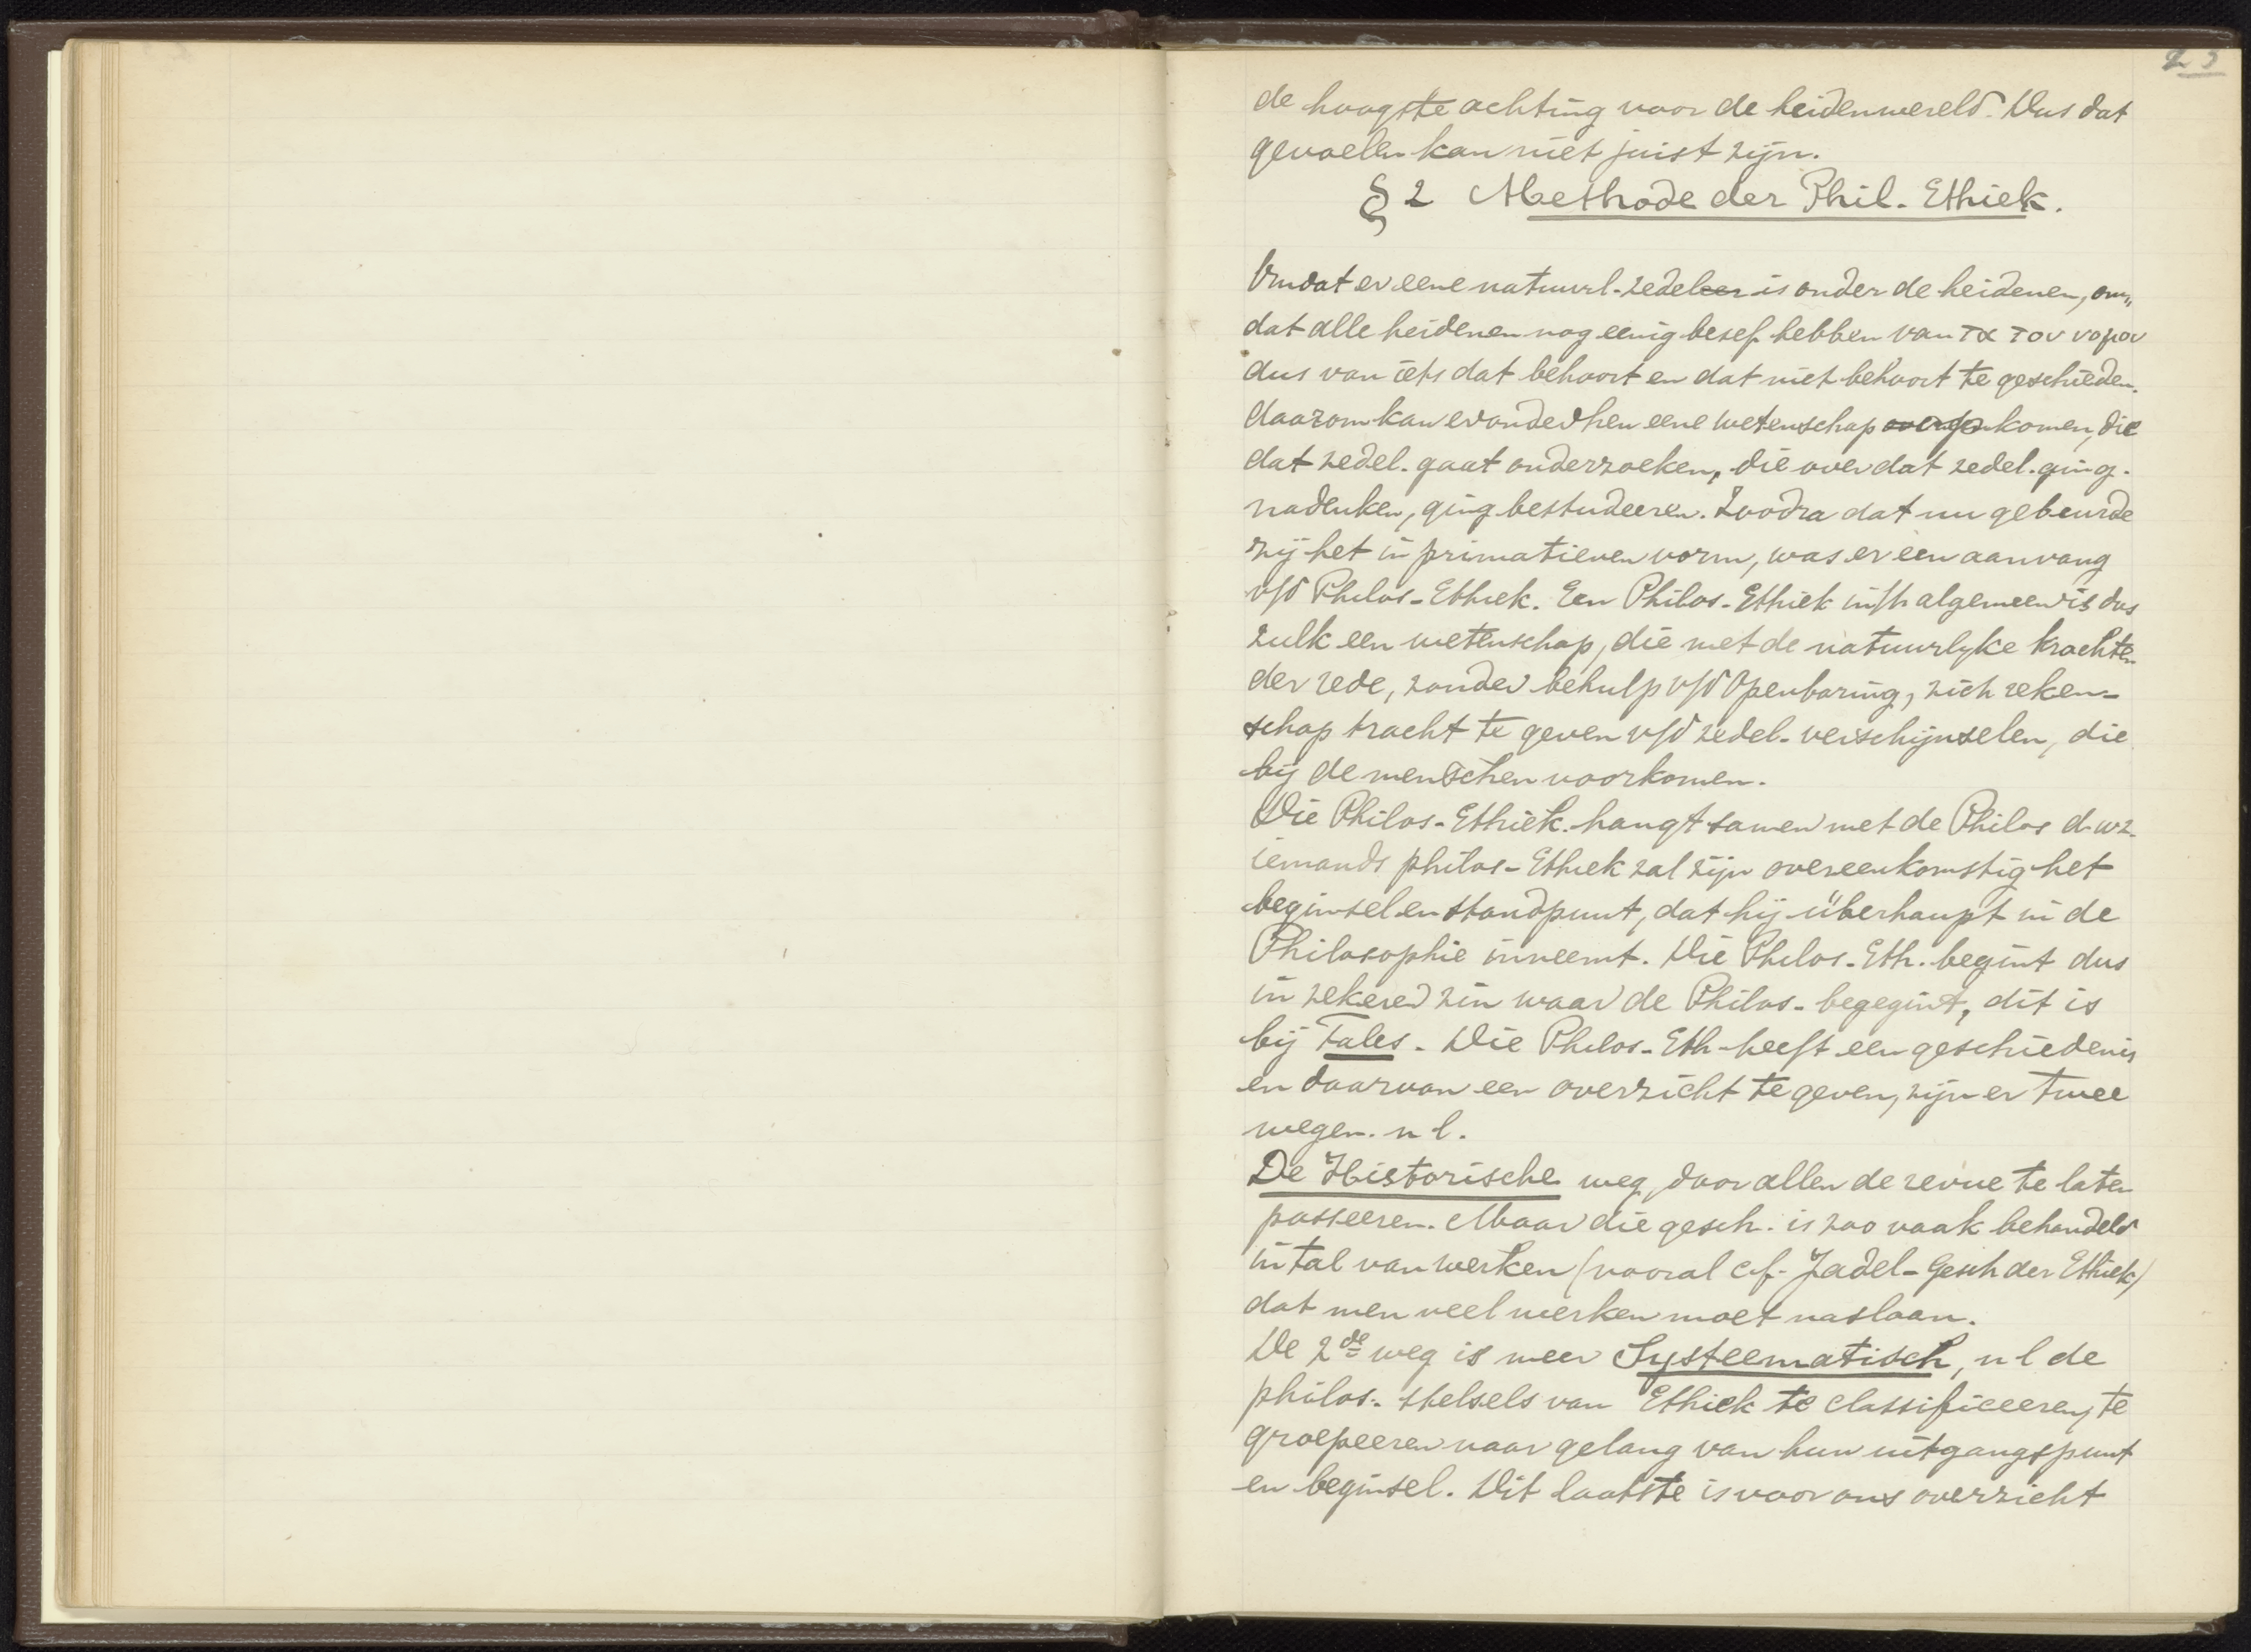 23
de hoogste achting voor de heidenwereld. Dus dat
gevoelen kan niet juist zijn.
§ 2 Methode der Phil. Ethiek.
Omdat er eene natuurl. zedeleer is onder de heidenen, om„
dat alle heidenen nog eenig besef hebben van τα του νομου
dus van iets dat behoort en dat niet behoort te geschieden.
daarom kan er onder hen eene wetenschap komen, die
dat zedel. gaat onderzoeken, die over dat zedel. ging.
nadenken, ging bestudeeren. Zoodra dat nu gebeurde
zij het in primatieven vorm, was er een aanvang
v/d Philos-Ethiek. Een Philos-Ethiek in 't algemeen is dus
zulk een wetenschap, die met de natuurlyke krachten
der rede, zonder behulp v/d Openbaring, zich reken-
schap tracht te geven v/d zedel. verschijnselen, die
bij de menschen voorkomen.
Die Philos-Ethiek. hangt samen met de Philos d.w.z.
iemands philos-Ethiek zal zijn overeenkomstig het
beginsel en standpunt, dat hij überhaupt in de
Philosophie inneemt. Die Philos-Eth. begint dus
in zekeren zin waar de Philos- begegint, dit is
bij Tales. Die Philos-Eth-heeft een geschiedenis
en daarvan een overzicht te geven, zijn er twee
wegen. n l.
De Historische weg, door allen de revue te laten
passeeren. Maar die gesch. is zoo vaak behandeld
in tal van werken (vooral cf. Jadel-Gesch der Ethiek)
dat men veel werken moet naslaan.
De 2de weg is meer Systeematisch, n l de
philos. stelsels van Ethiek te classificeeren, te
groepeeren naar gelang van hun uitgangspunt
en beginsel. Dit laatste is voor ons overzicht